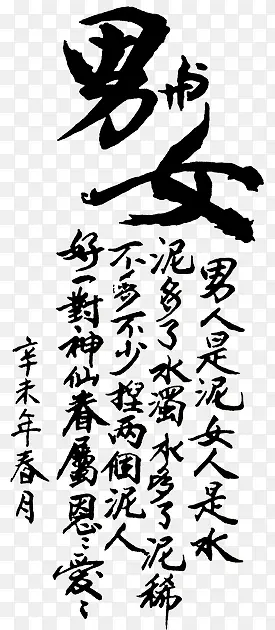 男与女
男人是泥女人是水
泥多了水濁水多了泥稀
不多不少捏两個泥人
好一對神仙眷屬恩〻愛〻
辛未年春月